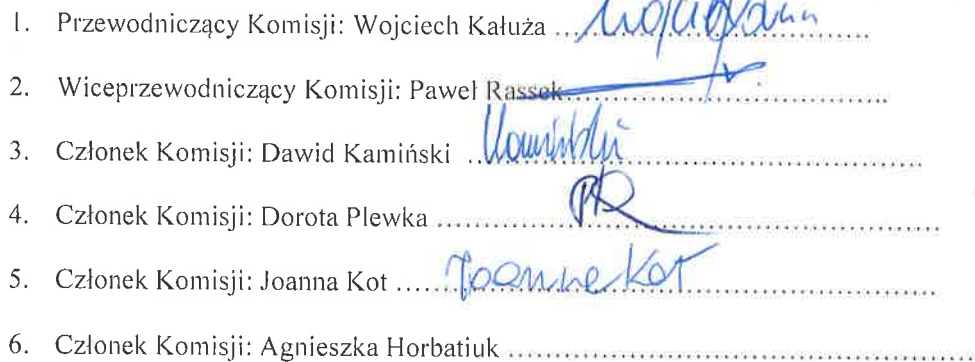 1. Przewodniczący Komisji: Wojciech Kałuża ....................
2. Wiceprzewodniczący Komisji: Paweł Rassek....................
3. Członek Komisji: Dawid Kamiński ..Kamiński....................
4. Członek Komisji: Dorota Plewka ....................
5. Członek Komisji: Joanna Kot .....Joanna Kot....................
6. Członek Komisji: Agnieszka Horbatiuk ....................